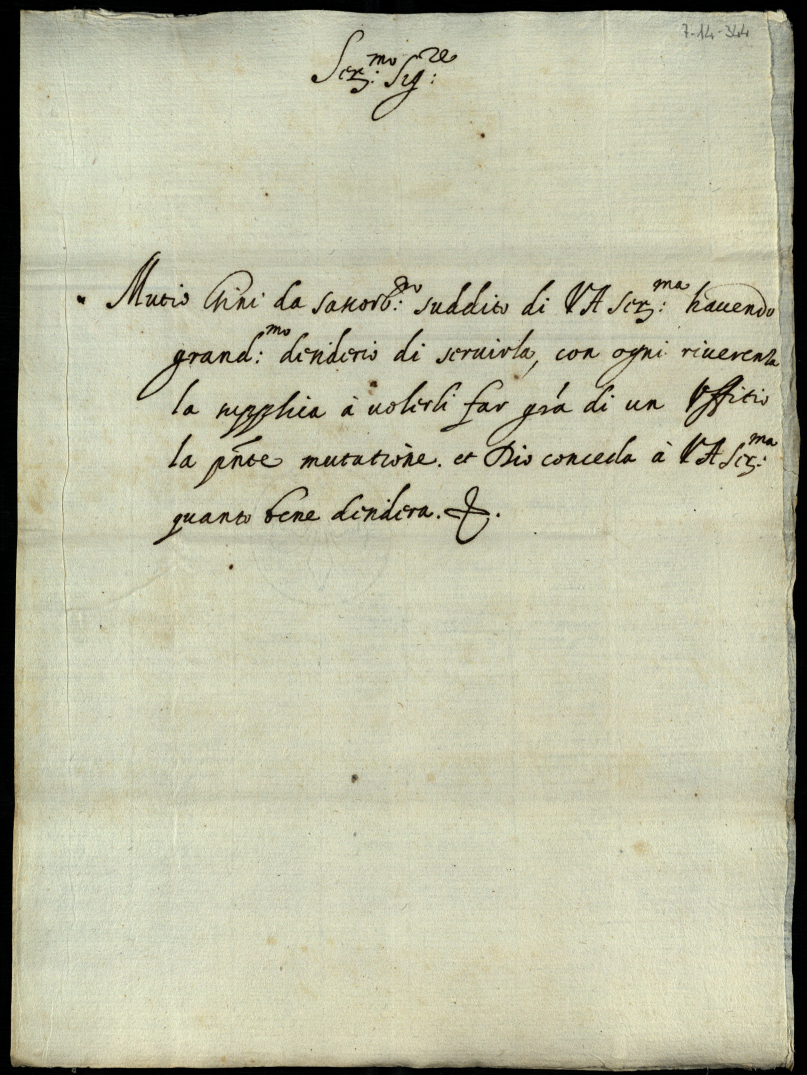 7-14-344
Ser.mo Sig.re
Mutio da suddito di VA Ser.ma havendo
grand.mo desiderio di servirla, con ogni riverenza
la supplica à volerli far gr̃a di un Uffitio
la pñte mutatione. et Dio conceda à VA Ser.ma
quanto bene desidera. &.